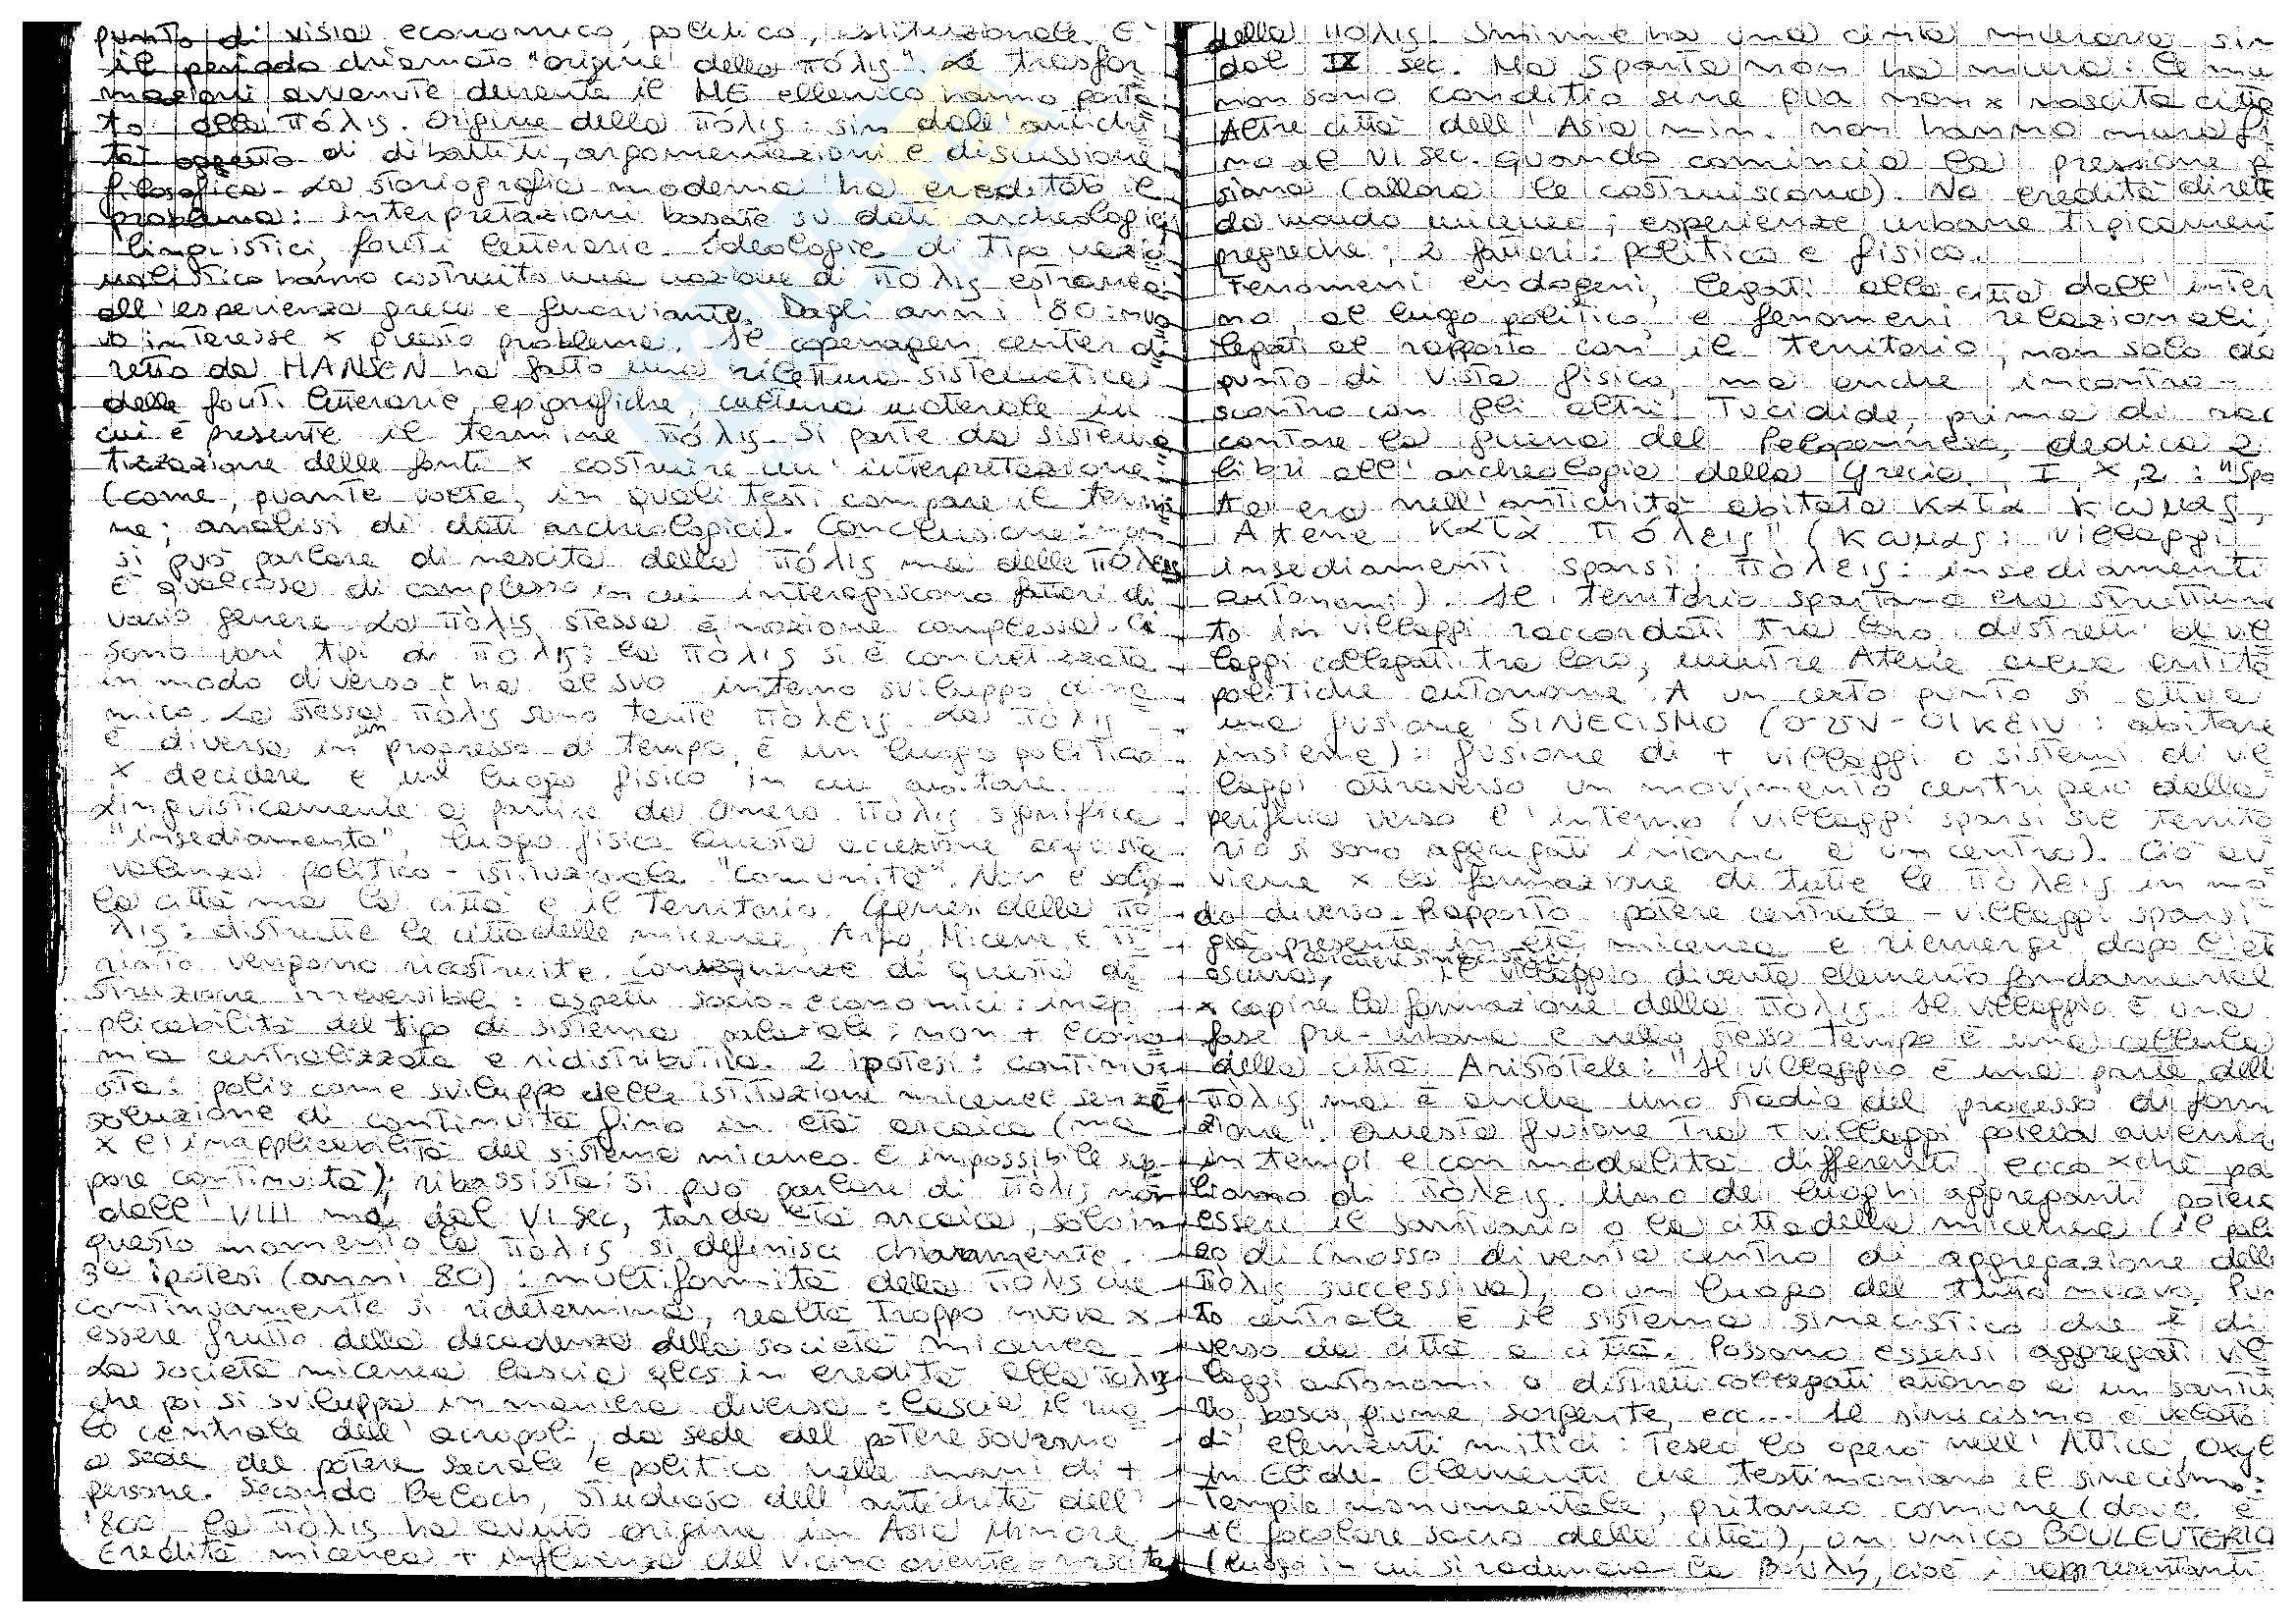 punto di vista economico, politico, istituzionale. È
il periodo chiamato "origine della πόλις". Le trasfor
mazioni avvenute durante il ME ellenico hanno porta
to alla πόλις. Origine della πόλις: sin dall'antichi
tà oggetto di dibattiti, argomentazioni e discussione
filosofica. La storiografia moderna ha ereditato il
problema: interpretazioni basate su dati archeologici
linguistici, fonti letterarie. Ideologie di tipo nazio
nalistico hanno costruito una nozione di πόλις estranea
all'esperienza greca e fuorviante. Dagli anni '80 nuo
vo interesse x questo problema. Il copenagen center di
retto da HANSEN ha fatto una rilettura sistematica
delle fonti letterarie, epigrafiche, cultura materiale in
cui è presente il termine πόλις. Si parte da sistema
tizzazione delle fonti x costruire un'interpretazione
(come, quante volte, in quali testi compare il termi
ne; analisi di dati archeologici). Conclusione: non
si può parlare di nascita della πόλις ma delle πόλεις
È qualcosa di complesso in cui interagiscono fattori di
vario genere. La πόλις stessa è nozione complessa. Ci
sono vari tipi di πόλις: la πόλις si è concretizzata
in modo diverso e ha al suo interno sviluppo dina
mico. La stessa πόλις sono tante πόλεις. La πόλις
è diversa in un progresso di tempo, è un luogo politico
x decidere e un luogo fisico in cui abitare.
Linguisticamente a partire da Omero πόλις significa
"insediamento", luogo fisico. Questa accezione acquista
valenza politico-istituzionale "comunità". Non è solo
la città ma la città e il territorio. Genesi della πό
λις: distrutte le cittadelle micenee, Argo, Micene e Ti
rinto vengono ricostruite. Conseguenze di questa di
struzione irreversibile: aspetti socio-economici: inap
plicabilità del tipo di sistema palaziale: non + econo
mia centralizzata e ridistributiva. 2 ipotesi: continui
sta: polis come sviluppo delle istituzioni micenee senza
soluzione di continuità fino in età arcaica (ma
x l'inapplicabilità del sistema miceneo è impossibile sup
porre continuità); ribassista: si può parlare di πόλις non
dall'VIII ma dal VI sec, tarda età arcaica, solo in
questo momento la πόλις si definisce chiaramente.
3ª ipotesi (anni 80): multiformità della πόλις che
continuamente si ridetermina, realtà troppo nuova x
essere frutto della decadenza della società micenea
La società micenea lascia qlcs in eredità alla πόλις
che poi si sviluppa in maniera diversa: lascia il ruo
lo centrale dell'acropoli, da sede del potere sovrano
a sede del potere sacrale e politico nelle mani di +
persone. Secondo Beloch, studioso dell'antichità dell'
'800, la πόλις ha avuto origine in Asia Minore.
Eredità micenea + influenza del vicino oriente = nascita
della πόλις. Smirne ha una cinta muraria sin
dal IX sec. Ma Sparta non ha mura: le mu
non sono conditio sine qua non x nascita città
Altre città dell'Asia min. non hanno mura fi
no al VI sec. quando comincia la pressione per
siana (allora le costruiscono). No eredità dirett
da mondo miceneo; esperienze urbane tipicamen
pregreche; 2 fattori: politico e fisico.
Fenomeni endogeni, legati alla città dall'inter
no, al luogo politico, e fenomeni relazionali,
legati al rapporto con il territorio, non solo da
punto di vista fisico, ma anche incontro-
scontro con gli altri. Tucidide, prima di rac
contare la guerra del Peloponneso, dedica 2
libri all'archeologia della Grecia, I, X, 2: "Spa
ta era nell'antichità abitata κατα κωμας,
Atene κατὰ πόλεις" (κωμας: villaggi,
insediamenti sparsi; πόλεις: insediamenti
autonomi). Il territorio spartano era struttura
to in villaggi raccordati tra loro: distretti di vil
laggi collegati tra loro, mentre Atene aveva entità
politiche autonome. A un certo punto si attua
una fusione SINECISMO (συν-οικειν: abitare
insieme): fusione di + villaggi o sistemi di vil
laggi attraverso un movimento centripeto dalla
periferia verso l'interno (villaggi sparsi sul territo
rio si sono aggregati intorno a un centro). Ciò av
viene x la formazione di tutte le πόλεις in mo
do diverso. Rapporto potere centrale - villaggi sparsi
già presente in età micenea e riemerge dopo l'et
oscura, il villaggio diventa elemento fondamental
x capire la formazione della πόλις. Il villaggio è una
fase pre-urbana e nello stesso tempo è una cellula
della città. Aristotele: "Il villaggio è una parte dell
πόλις ma è anche uno stadio del processo di form
zione". Questa fusione tra + villaggi poteva avveni
in tempi e con modalità differenti ecco xchè pa
liamo di πόλεις. Uno dei luoghi aggreganti poteva
essere il santuario o la cittadella micenea (il pala
zo di Cnosso diventa centro di aggregazione dell
πόλις successiva), o un luogo del tutto nuovo. Pun
to centrale è il sistema sinecistico che è di
verso da città a città. Possono essersi aggregati vil
laggi autonomi o distretti collegati attorno a un santua
rio, bosco, fiume, sorgente, ecc... Il sinecismo è velato
di elementi mitici: Teseo lo operò nell'Attica, Oxyl
in Elide. Elementi che testimoniano il sinecismo:
Tempio monumentale, pritaneo comune (dove è
il focolare sacro della città), un unico BOULEUTERIO
(luogo in cui si radunava la Βουλή, cioè i rappresentanti